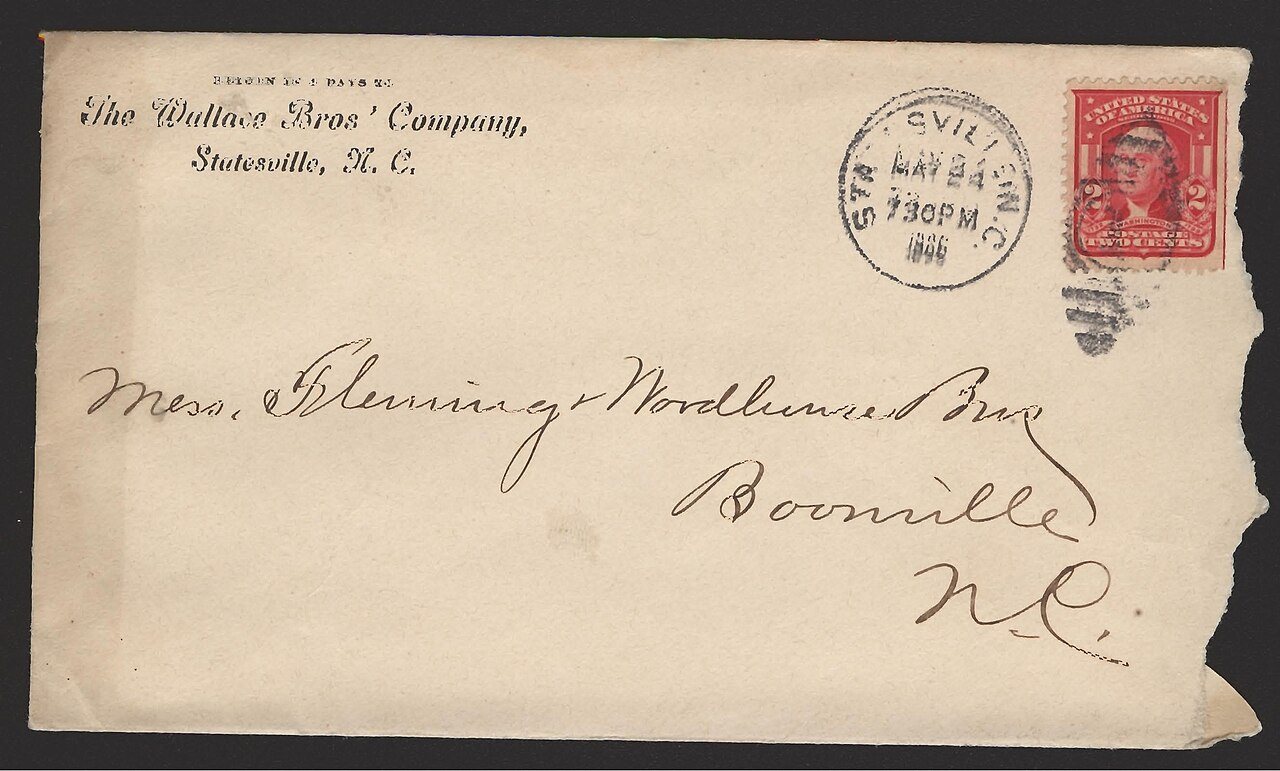 RETURN IN 5 DAYS TO
The Wallace Bros' Company,
Statesville, N. C.
STATESVILLE, N.C.
MAY 24
730PM
UNITED STATES
OF AMERICA
2 2
WASHINGTON
POSTAGE
TWO CENTS
Mess. Fleming & Woodhouse Bros
Boonville
N.C.